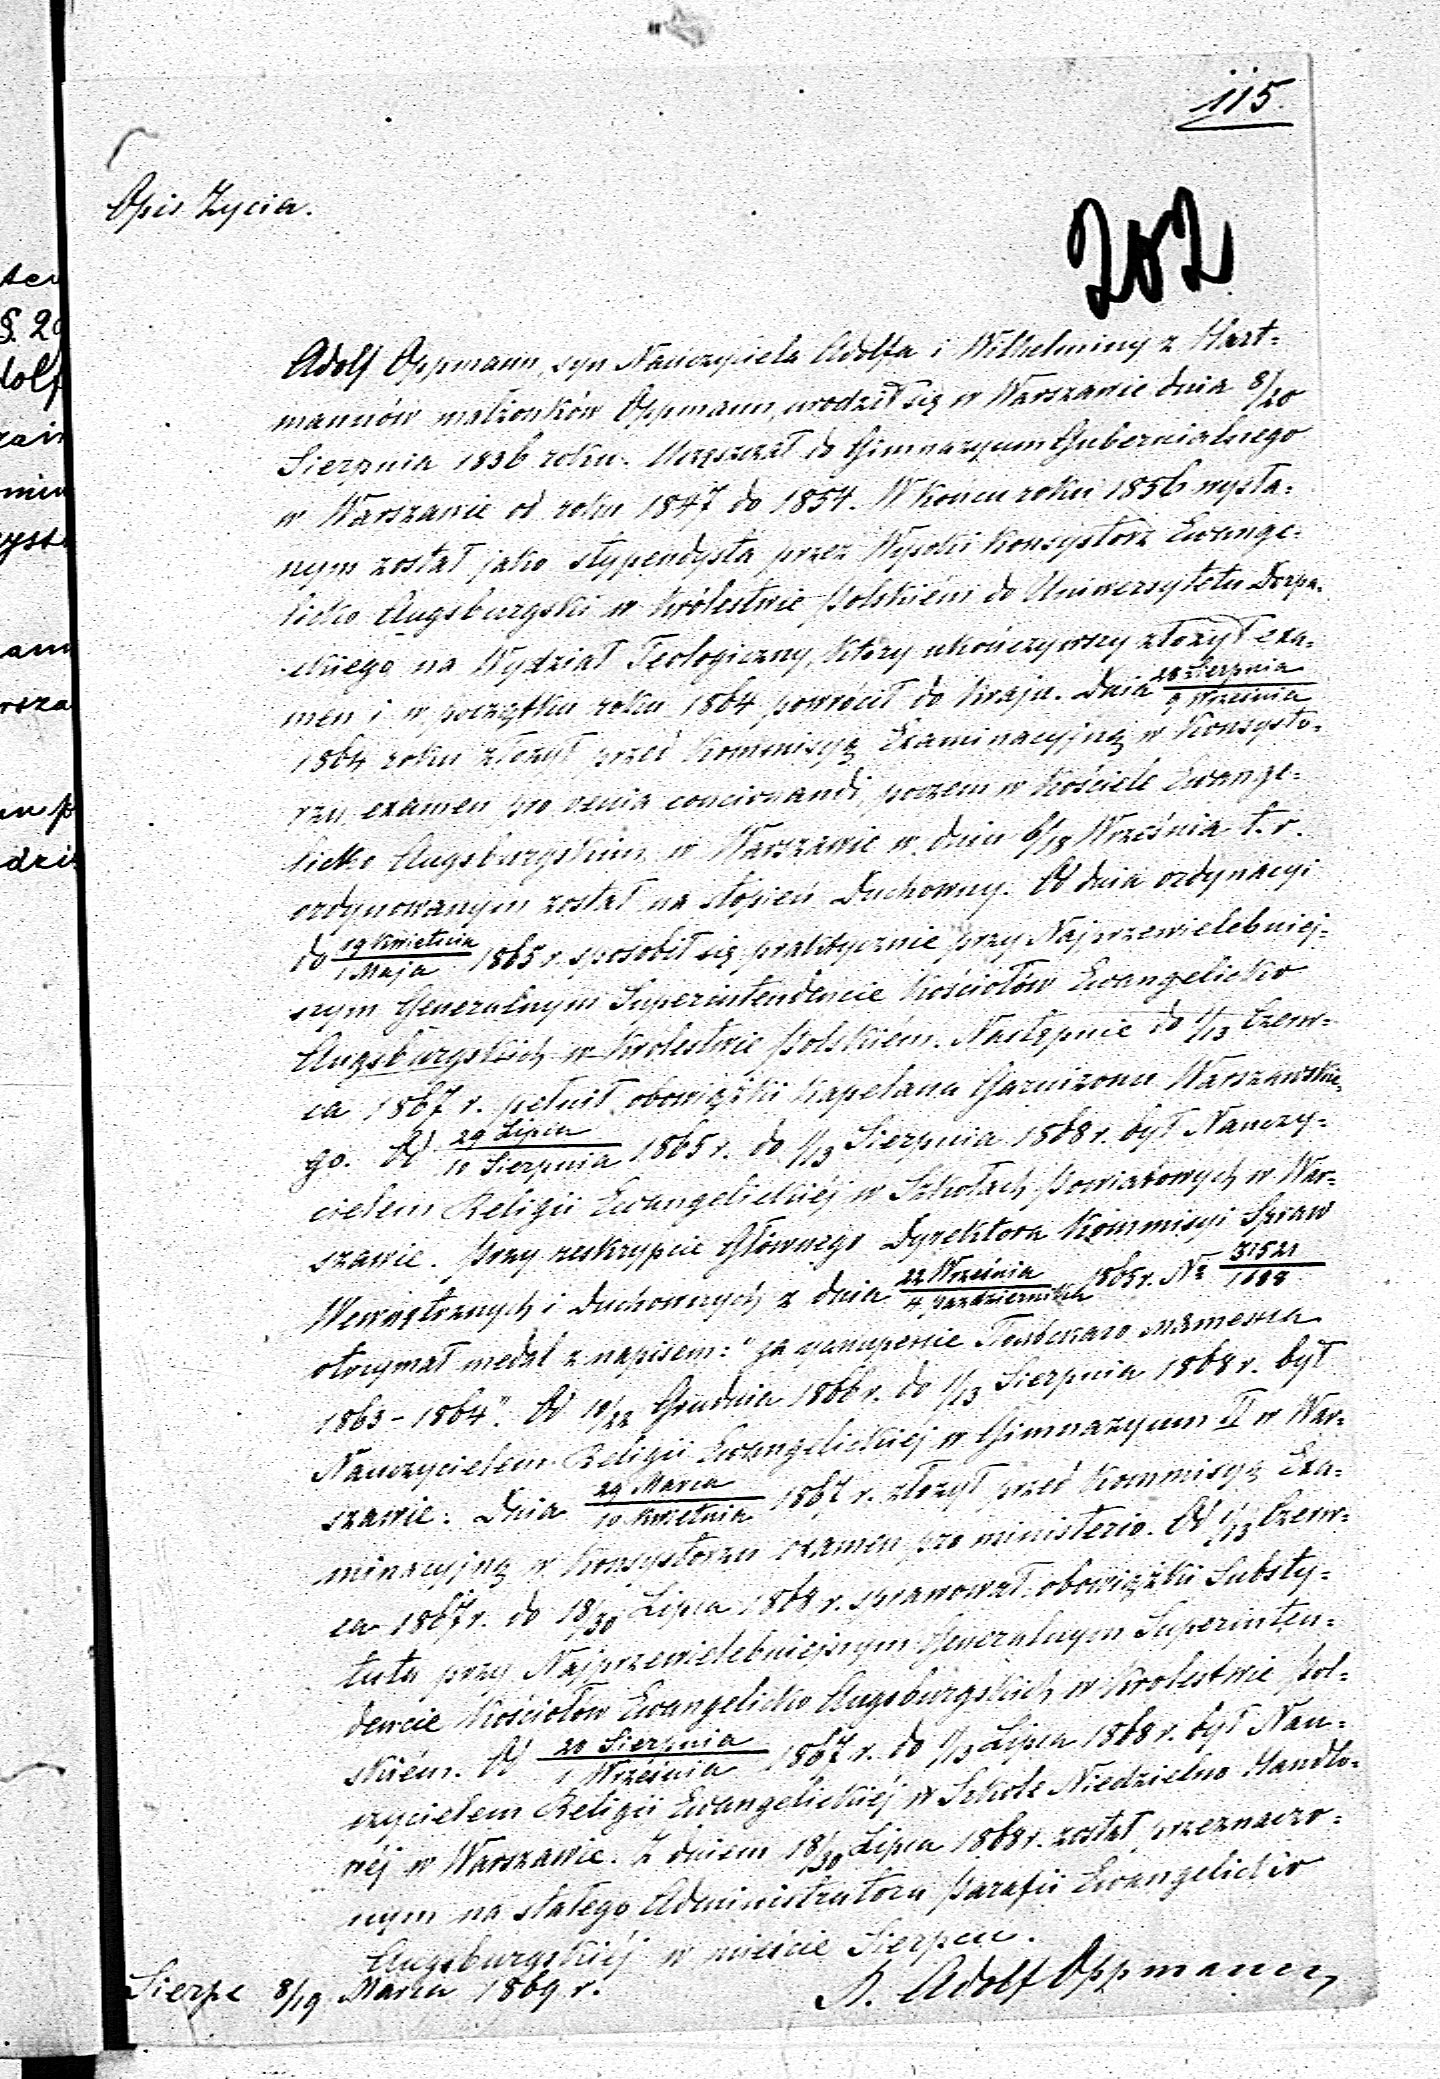 115.
Opis Życia.
202
Adolf Oppmann, syn Nauczyciela Adolfa i Wilhelminy z Hart=
mannów małżonków Oppmann, urodził się w Warszawie dnia 8/20
Sierpnia 1836 roku. Uczęszczał do Gimnazyum Gubernialnego
w Warszawie od roku 1847 do 1854. W końcu roku 1856 wysła=
nym został jako stypendysta przez Wysoki Konsystorz Ewange=
licko Augsburgski w Królestwie Polskiém do Uniwersytetu Dorpa=
ckiego na Wydział Teologiczny, który ukończywszy złożył exa=
men i w początku roku 1864 powrócił do Kraju. Dnia 28 Sierpnia / 9 Września
1864 roku złożył przed Kommisyą Examinacyjną w Konsysto=
rzu examen pro venia concionandi, poczem w Kościele Ewange=
licko Augsburgskim w Warszawie w dniu 6/18 Września t. r.
ordynowanym został na stopień Duchowny. Od dnia ordynacyi
do 19 Kwietnia / 1 Maja 1865 r. sposobił się praktycznie przy Najprzewielebniej=
szym Generalnym Superintendencie Kościołów Ewangelicko
Augsburgskich w Królestwie Polskiém. Następnie do 1/13 Czerw=
ca 1867 r. pełnił obowiązki Kapelana Garnizonu Warszawskie=
go. Od 29 Lipca / 10 Sierpnia 1865 r. do 1/13 Sierpnia 1868 r. był Nauczy=
cielem Religii Ewangelickiéj w Szkołach Powiatowych w War=
szawie. Przy reskrypcie Głównego Dyrektora Kommisyi Spraw
Wewnętrznych i Duchownych z dnia 22 Września / 4 Października 1865 r. № 31521 / 1688
otrzymał medal z napisem: "за усмирение Польскаго мятежа
1863 - 1864". Od 10/22 Grudnia 1866 r. do 1/13 Sierpnia 1868 r. był
Nauczycielem Religii Ewangelickiéj w Gimnazyum II w War=
szawie. Dnia 29 Marca / 10 Kwietnia 1867 r. złożył przed Kommisyą Exa=
minacyjną w Konsystorzu examen pro ministerio. Od 1/13 Czerw=
ca 1867 r. do 18/30 Lipca 1868 r. sprawował obowiązki Substy=
tuta przy Najprzewielebniejszym Generalnym Superinten=
dencie Kościołów Ewangelicko Augsburgskich w Królestwie Pol=
skiém. Od 20 Sierpnia / 1 Września 1867 r. do 1/13 Lipca 1868 r. był Nau=
czycielem Religii Ewangelickiéj w Szkole Niedzielno Handlo=
wéj w Warszawie. Z dniem 18/30 Lipca 1868 r. został przeznaczo=
nym na stałego Administratora Parafii Ewangelicko
Augsburgskiéj w mieście Sierpcu.
Sierpc 8/19 Marca 1869 r.
Adolf Oppmann